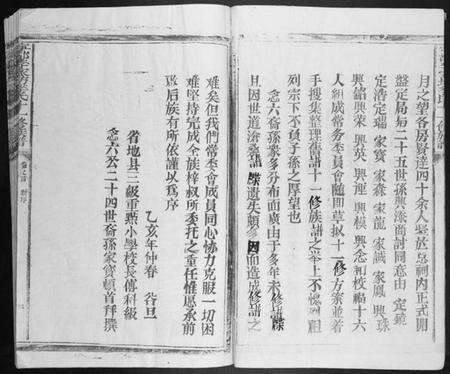 月之望各房賢達四十余人暨於总祠內正式開
盤定局如二十五世孫興漆商討同意由 定鏡
定浩 定瑞 家寶 家森 家龍 家誠 家鳳 興珠
興韜 興榮 興英 興程 興模 興念 初校 騮十六
人組成常务委員會隨即草拟十一修方案並着
手搜集整理舊譜十一修族譜之举上不愧烈祖
列宗下不負子孫之厚望也
念六裔孫繁多分布面廣由于多年未修譜牒
且因世道滄桑譜牒遺失頗多因而造成修譜之
难矣但我們常委會成員同心协力克服一切困
难堅持完成全族梓叔所委托之重任惟愿承前
啟后族有所依謹以為序
乙亥年仲春 谷旦
省地县三級重點小學校長傅科級
念六公二十四世裔孫家寶頓首拜撰